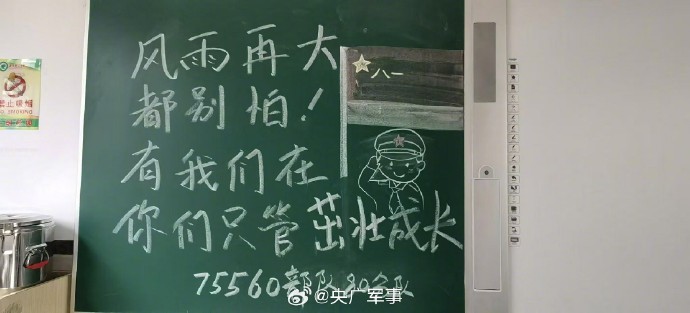 风雨再大
都别怕！
有我们在
你们只管茁壮成长
75560部队90分队
八一
@央广军事